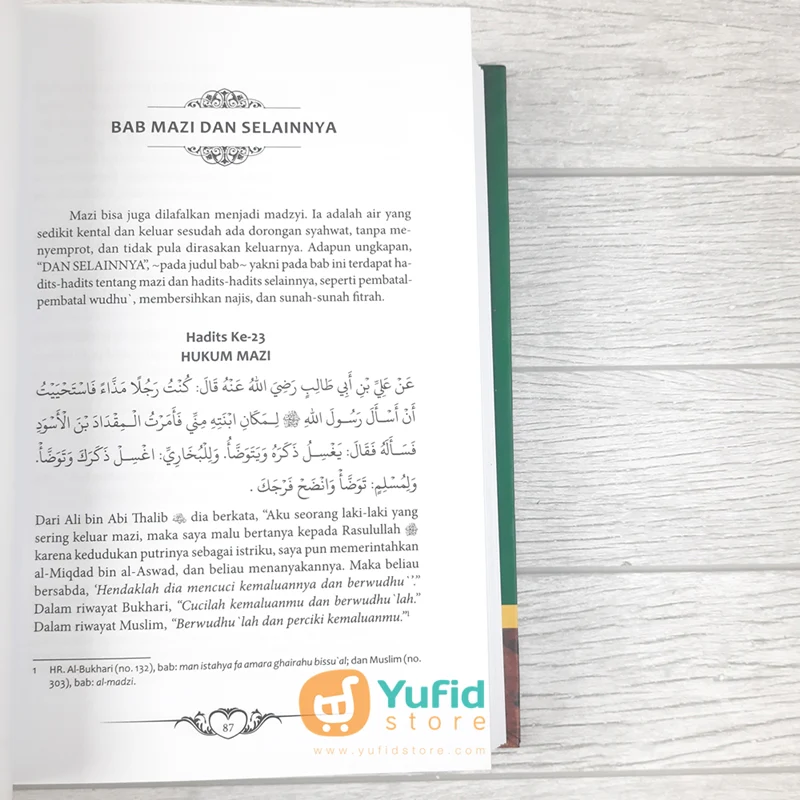 BAB MAZI DAN SELAINNYA
Mazi bisa juga dilafalkan menjadi madzyi. Ia adalah air yang
sedikit kental dan keluar sesudah ada dorongan syahwat, tanpa me-
nyemprot, dan tidak pula dirasakan keluarnya. Adapun ungkapan,
“DAN SELAINNYA”, ~pada judul bab~ yakni pada bab ini terdapat ha-
dits-hadits tentang mazi dan hadits-hadits selainnya, seperti pembatal-
pembatal wudhu`, membersihkan najis, dan sunah-sunah fitrah.
Hadits Ke-23
HUKUM MAZI
عَنْ عَلِيِّ بْنِ أَبِي طَالِبٍ رَضِيَ اللهُ عَنْهُ قَالَ: كُنْتُ رَجُلًا مَذَّاءً فَاسْتَحْيَيْتُ
أَنْ أَسْأَلَ رَسُولَ اللهِ ﷺ لِـمَكَانِ ابْنَتِهِ مِنِّي فَأَمَرْتُ الْـمِقْدَادَ بْنَ الْأَسْوَدِ
فَسَأَلَهُ فَقَالَ: يَغْسِلُ ذَكَرَهُ وَيَتَوَضَّأُ. وَلِلْبُخَارِيِّ: اغْسِلْ ذَكَرَكَ وَتَوَضَّأْ.
وَلِمُسْلِمٍ: تَوَضَّأْ وَانْضَحْ فَرْجَكَ .
Dari Ali bin Abi Thalib ؓ dia berkata, “Aku seorang laki-laki yang
sering keluar mazi, maka saya malu bertanya kepada Rasulullah ﷺ
karena kedudukan putrinya sebagai istriku, saya pun memerintahkan
al-Miqdad bin al-Aswad, dan beliau menanyakannya. Maka beliau
bersabda, ‘Hendaklah dia mencuci kemaluannya dan berwudhu`’.”
Dalam riwayat Bukhari, “Cucilah kemaluanmu dan berwudhu`lah.”
Dalam riwayat Muslim, “Berwudhu`lah dan perciki kemaluanmu.”1
1 HR. Al-Bukhari (no. 132), bab: man istahya fa amara ghairahu bissu`al; dan Muslim (no.
303), bab: al-madzi.
87
Yufid
store
www.yufidstore.com